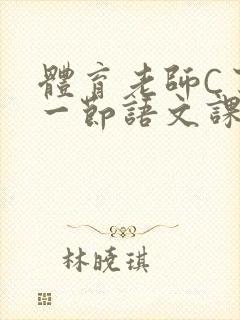 體育老師C
一節語文課
林曉琪